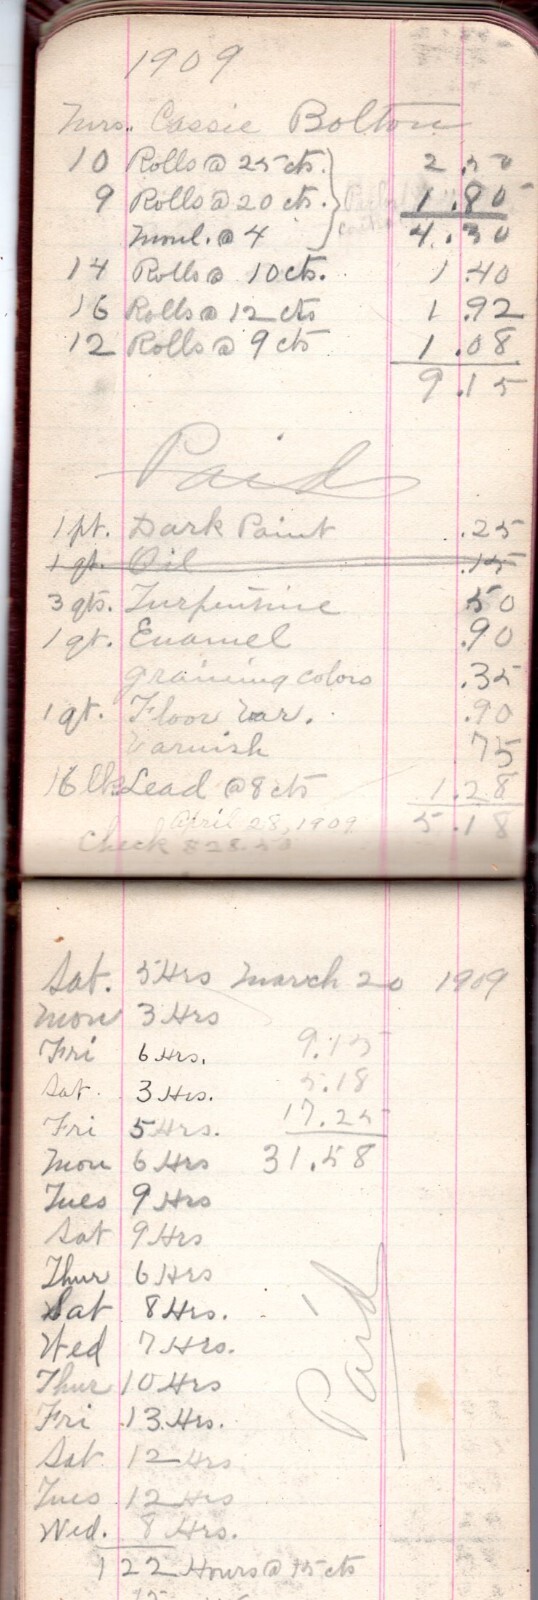 1909
Mrs. Cassie Bolton
10 Rolls @ 25 cts. 2.50
9 Rolls @ 20 cts. 1.80
Moul. @ 4 4.30
14 Rolls @ 10 cts. 1.40
16 Rolls @ 12 cts 1.92
12 Rolls @ 9 cts 1.08
9.15
Paid
1 pt. Dark Paint .25
1 qt. Oil .15
3 qts. Turpentine 50
1 qt. Enamel .90
graining colors .35
1 qt. Floor Var. .90
Varnish 75
16 lbs Lead @ 8 cts 1.28
April 28, 1909 5.18
Check $28.50
Sat. 5 Hrs March 20 1909
Mon 3 Hrs
Fri 6 Hrs. 9.15
Sat. 3 Hrs. 5.18
Fri 5 Hrs. 17.25
Mon 6 Hrs 31.58
Tues 9 Hrs
Sat 9 Hrs
Thur 6 Hrs
Sat 8 Hrs.
Wed 7 Hrs.
Thur 10 Hrs
Fri 13 Hrs.
Sat 12 Hrs
Tues 12 Hrs
Wed. 8 Hrs.
Paid
122 Hours @ 15 cts